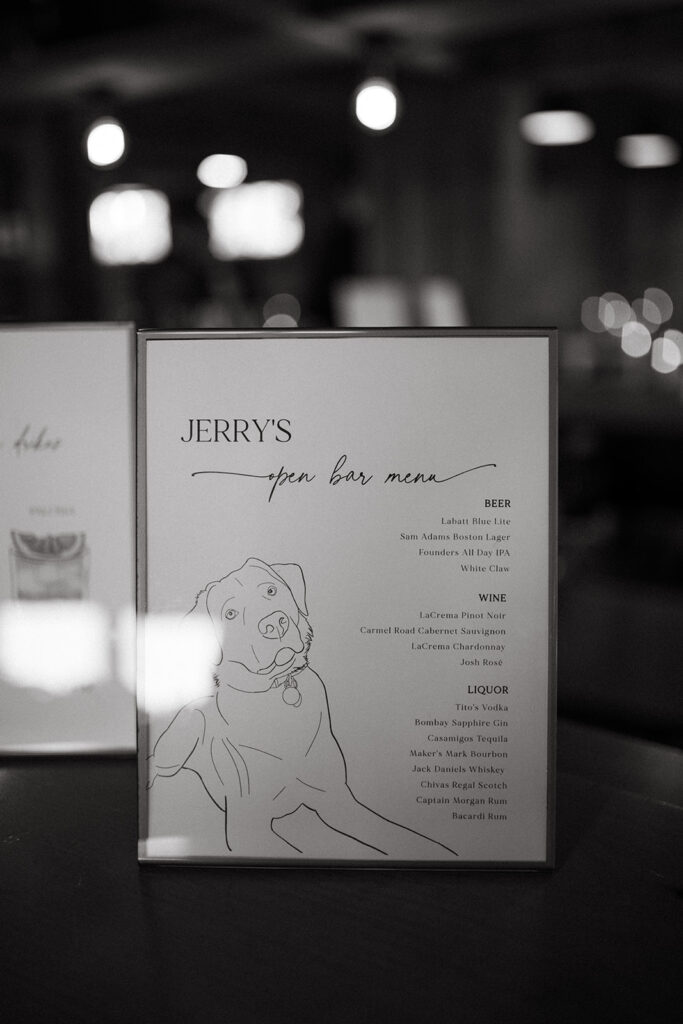 JERRY'S
open bar menu
BEER
Labatt Blue Lite
Sam Adams Boston Lager
Founders All Day IPA
White Claw
WINE
LaCrema Pinot Noir
Carmel Road Cabernet Sauvignon
LaCrema Chardonnay
Josh Rosé
LIQUOR
Tito's Vodka
Bombay Sapphire Gin
Casamigos Tequila
Maker's Mark Bourbon
Jack Daniels Whiskey
Chivas Regal Scotch
Captain Morgan Rum
Bacardi Rum